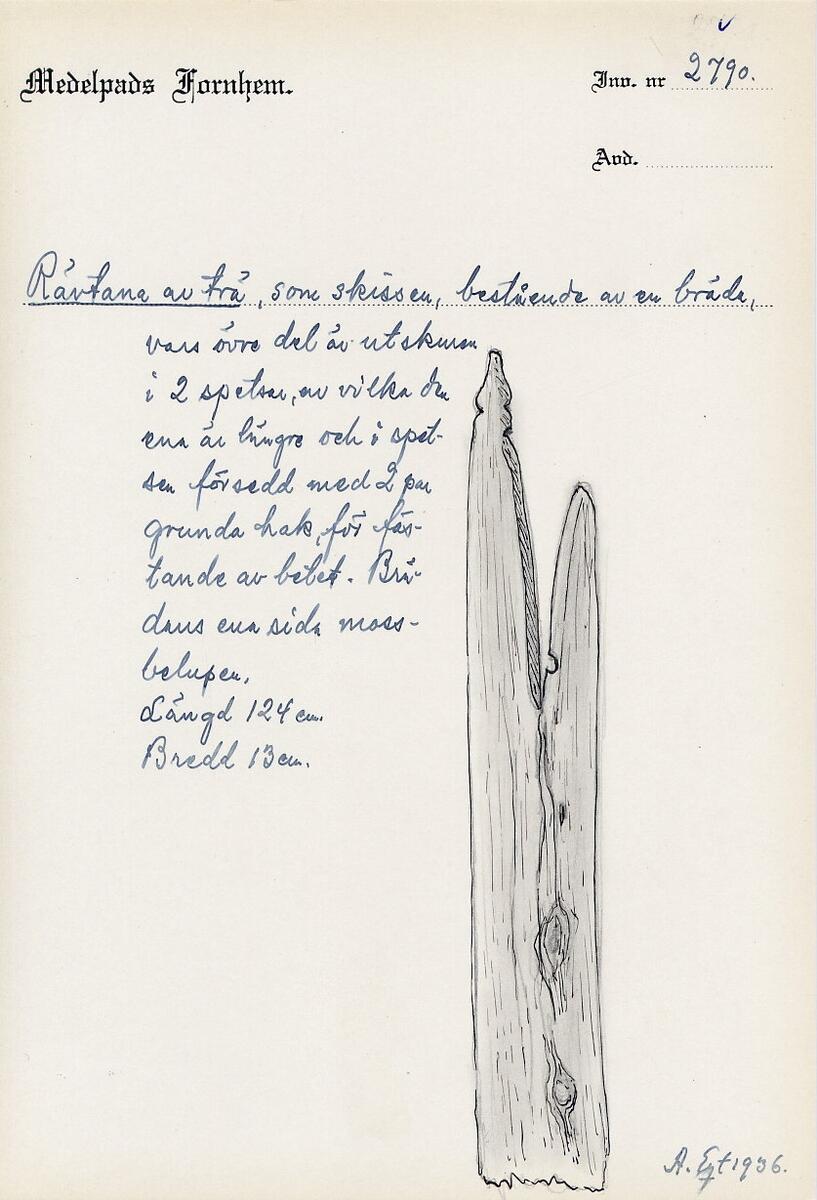 Medelpads Fornhem.
Inv. nr 2790.
Avd.
Rävtana av trä, som skissen, bestående av en bräda,
vars övre del är utskuren
i 2 spetsar, av vilka den
ena är längre och i spet-
sen försedd med 2 par
grunda hak, för fäs-
tande av betet. Brä-
dans ena sida moss-
belupen.
Längd 124 cm.
Bredd 13 cm.
A. 1936.